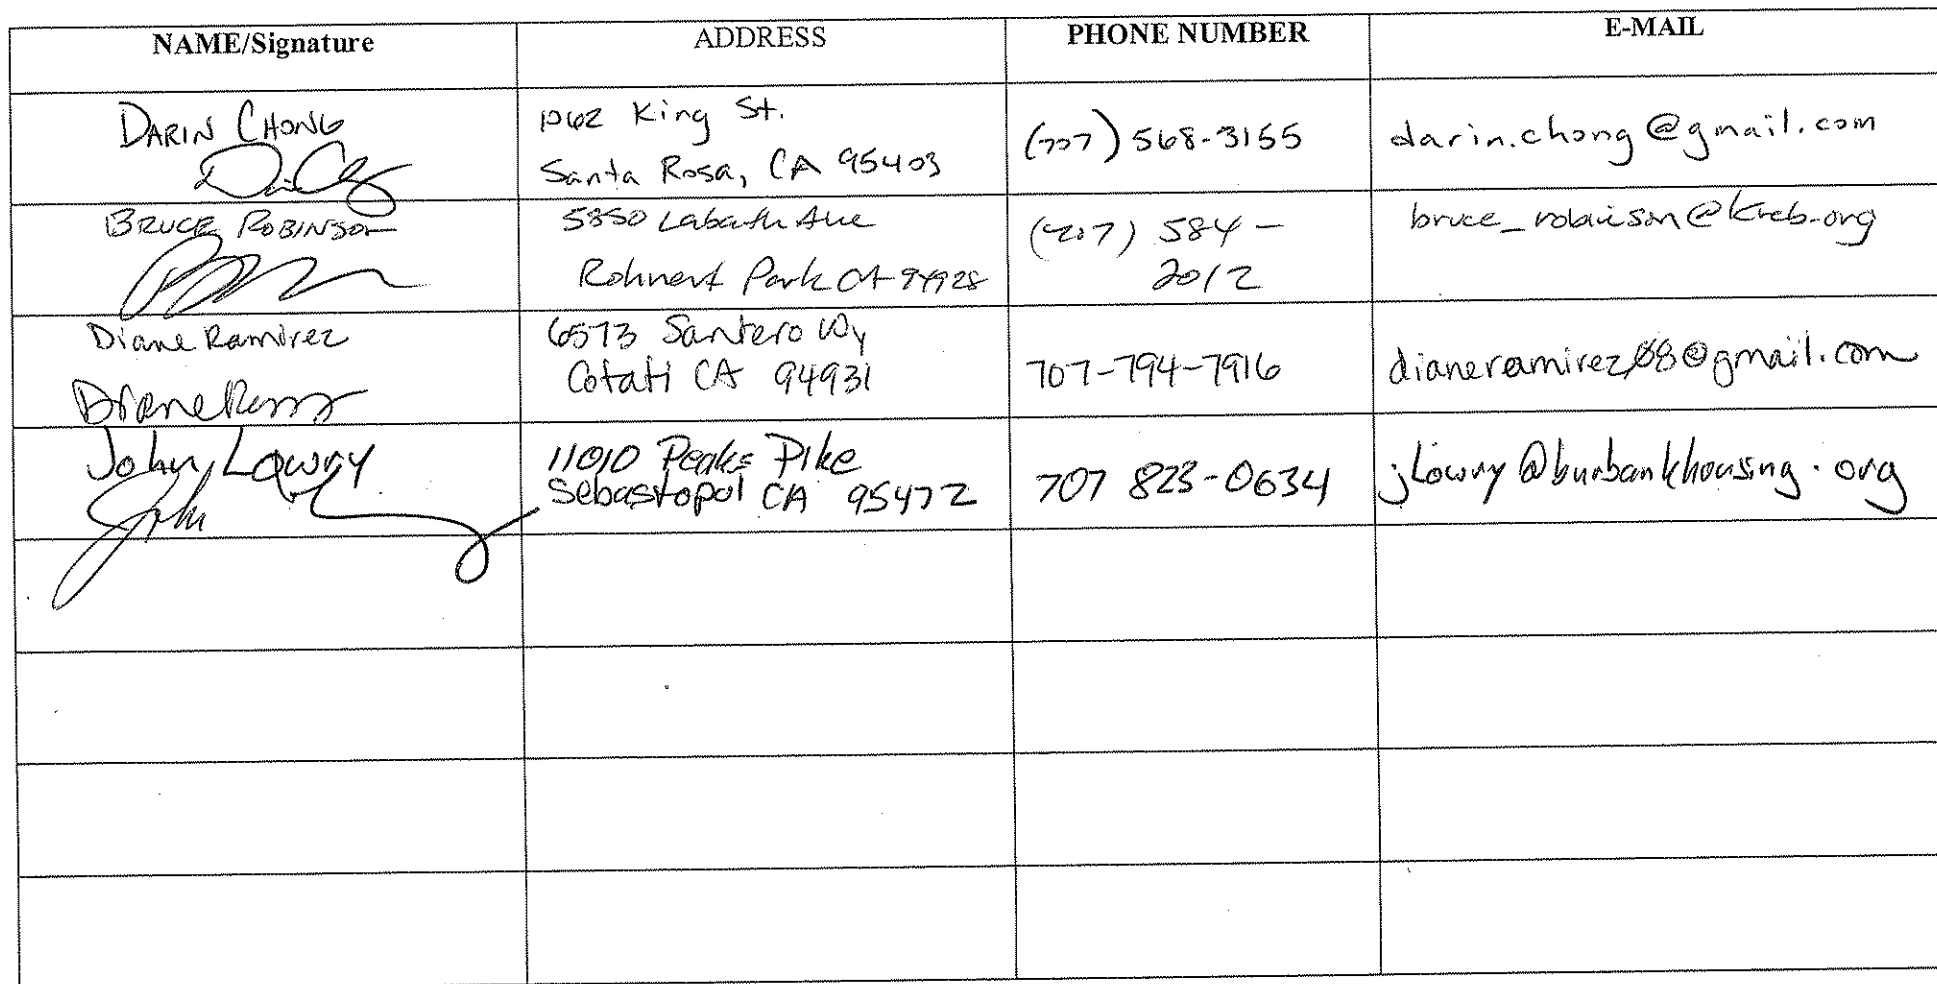 NAME/Signature ADDRESS PHONE NUMBER E-MAIL
DARIN CHONG
1062 King St.
Santa Rosa, CA 95403
(707) 568-3155
darin.chong@gmail.com
BRUCE ROBINSON
5850 Labath Ave
Rohnert Park CA 94928
(707) 584-
2012
bruce_robinson@krcb.org
Diane Ramirez
6573 Santero Wy
Cotati CA 94931
707-794-7916
dianeramirez08@gmail.com
John Lowry
John
11010 Peaks Pike
Sebastopol CA 95472
707 823-0634
jlowry@burbankhousing.org